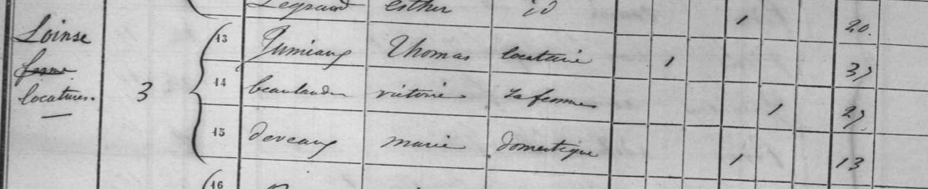 Legrand esther id 1 20.
Loinse
ferme
locatures. 3
13 Jumeaux Thomas locataire 1 37
14 beaulande victorie sa femme 1 27
15 deveaux marie domestique 1 13
16